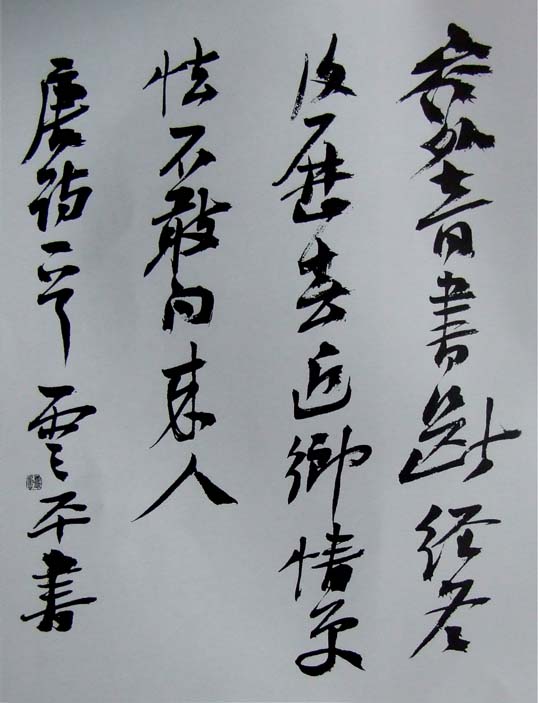 岭外音书断经冬
复历春近乡情更
怯不敢问来人
唐诗一首云平书